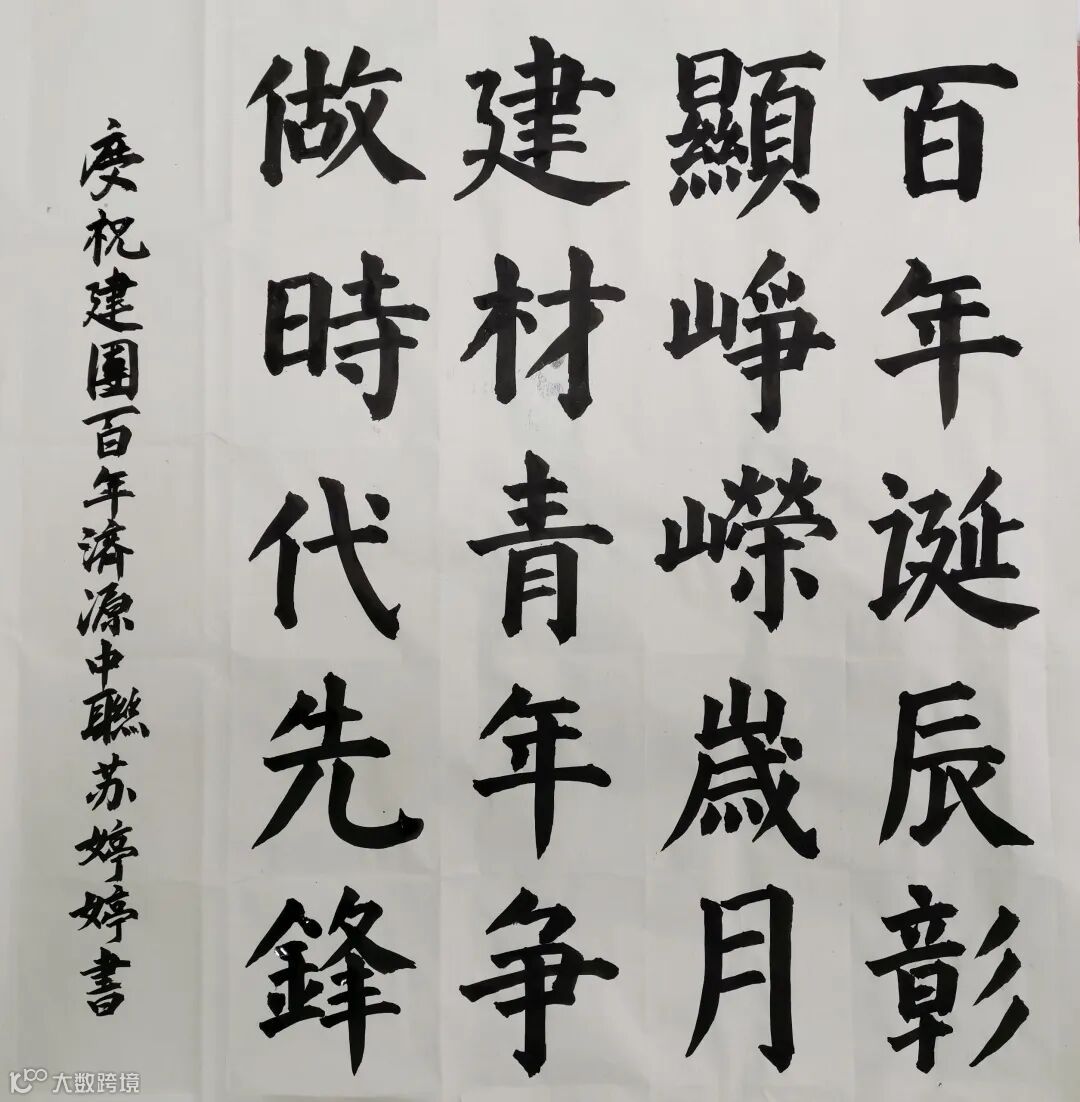 百年诞辰彰
顯崢嶸歲月
建材青年争
做時代先鋒
庆祝建團百年濟源中聯苏婷婷書
大数跨境